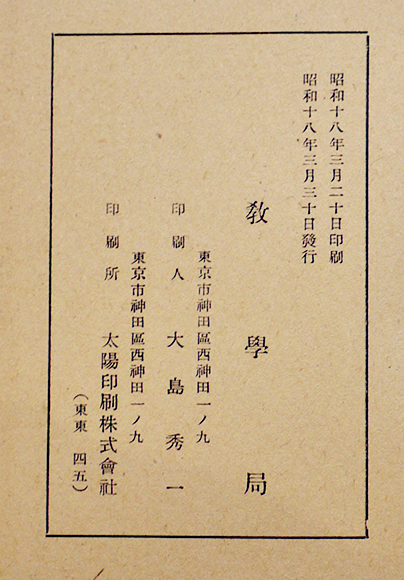 昭和十八年三月二十日印刷
昭和十八年三月三十日發行
敎學局
東京市神田區西神田一ノ九
印刷人 大島秀一
東京市神田區西神田一ノ九
印刷所 太陽印刷株式會社
（東東 四五）